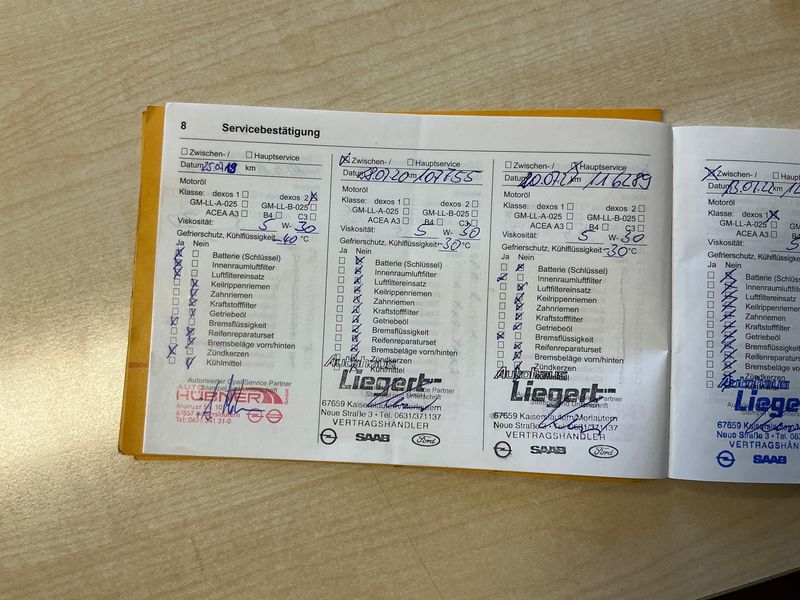 8 Servicebestätigung
Zwischen-/ Hauptservice
Datum 25.07.19 km
Motoröl
Klasse: dexos 1 dexos 2
GM-LL-A-025 GM-LL-B-025
ACEA A3 B4 C3
Viskosität: 5 W- 30
Gefrierschutz, Kühlflüssigkeit -40 °C
Ja Nein
Batterie (Schlüssel)
Innenraumluftfilter
Luftfiltereinsatz
Keilrippenriemen
Zahnriemen
Kraftstofffilter
Getriebeöl
Bremsflüssigkeit
Reifenreparaturset
Bremsbeläge vorn/hinten
Zündkerzen
Kühlmittel
Autorisierter Opel Service Partner
AUTO
HÜBNER GmbH
67657 Kaiserslautern
Zwischen-/ Hauptservice
Datum km 107155
Motoröl
Klasse: dexos 1 dexos 2
GM-LL-A-025 GM-LL-B-025
ACEA A3 B4 C3
Viskosität: 5 W- 30
Gefrierschutz, Kühlflüssigkeit -30 °C
Ja Nein
Batterie (Schlüssel)
Innenraumluftfilter
Luftfiltereinsatz
Keilrippenriemen
Zahnriemen
Kraftstofffilter
Getriebeöl
Bremsflüssigkeit
Reifenreparaturset
Bremsbeläge vorn/hinten
Zündkerzen
Kühlmittel
Autohaus
Liegert
67659 Kaiserslautern/Morlautern
Neue Straße 3 • Tel. 0631/371137
VERTRAGSHÄNDLER
SAAB Ford
Zwischen-/ Hauptservice
Datum 20.07.21 km 116289
Motoröl
Klasse: dexos 1 dexos 2
GM-LL-A-025 GM-LL-B-025
ACEA A3 B4 C3
Viskosität: 5 W- 30
Gefrierschutz, Kühlflüssigkeit -30 °C
Ja Nein
Batterie (Schlüssel)
Innenraumluftfilter
Luftfiltereinsatz
Keilrippenriemen
Zahnriemen
Kraftstofffilter
Getriebeöl
Bremsflüssigkeit
Reifenreparaturset
Bremsbeläge vorn/hinten
Zündkerzen
Kühlmittel
Autohaus
Liegert
67659 Kaiserslautern/Morlautern
Neue Straße 3 • Tel. 0631/371137
VERTRAGSHÄNDLER
SAAB Ford
Zwischen-/ Hauptservice
Datum 13.07.22 km
Motoröl
Klasse: dexos 1
GM-LL-A-025
ACEA A3
Viskosität: 5
Gefrierschutz, Kühlflüssigkeit
Ja Nein
Autohaus
67659 Kaiserslautern
Neue Straße 3 • Tel.
VERTRAGSHÄ
SAAB